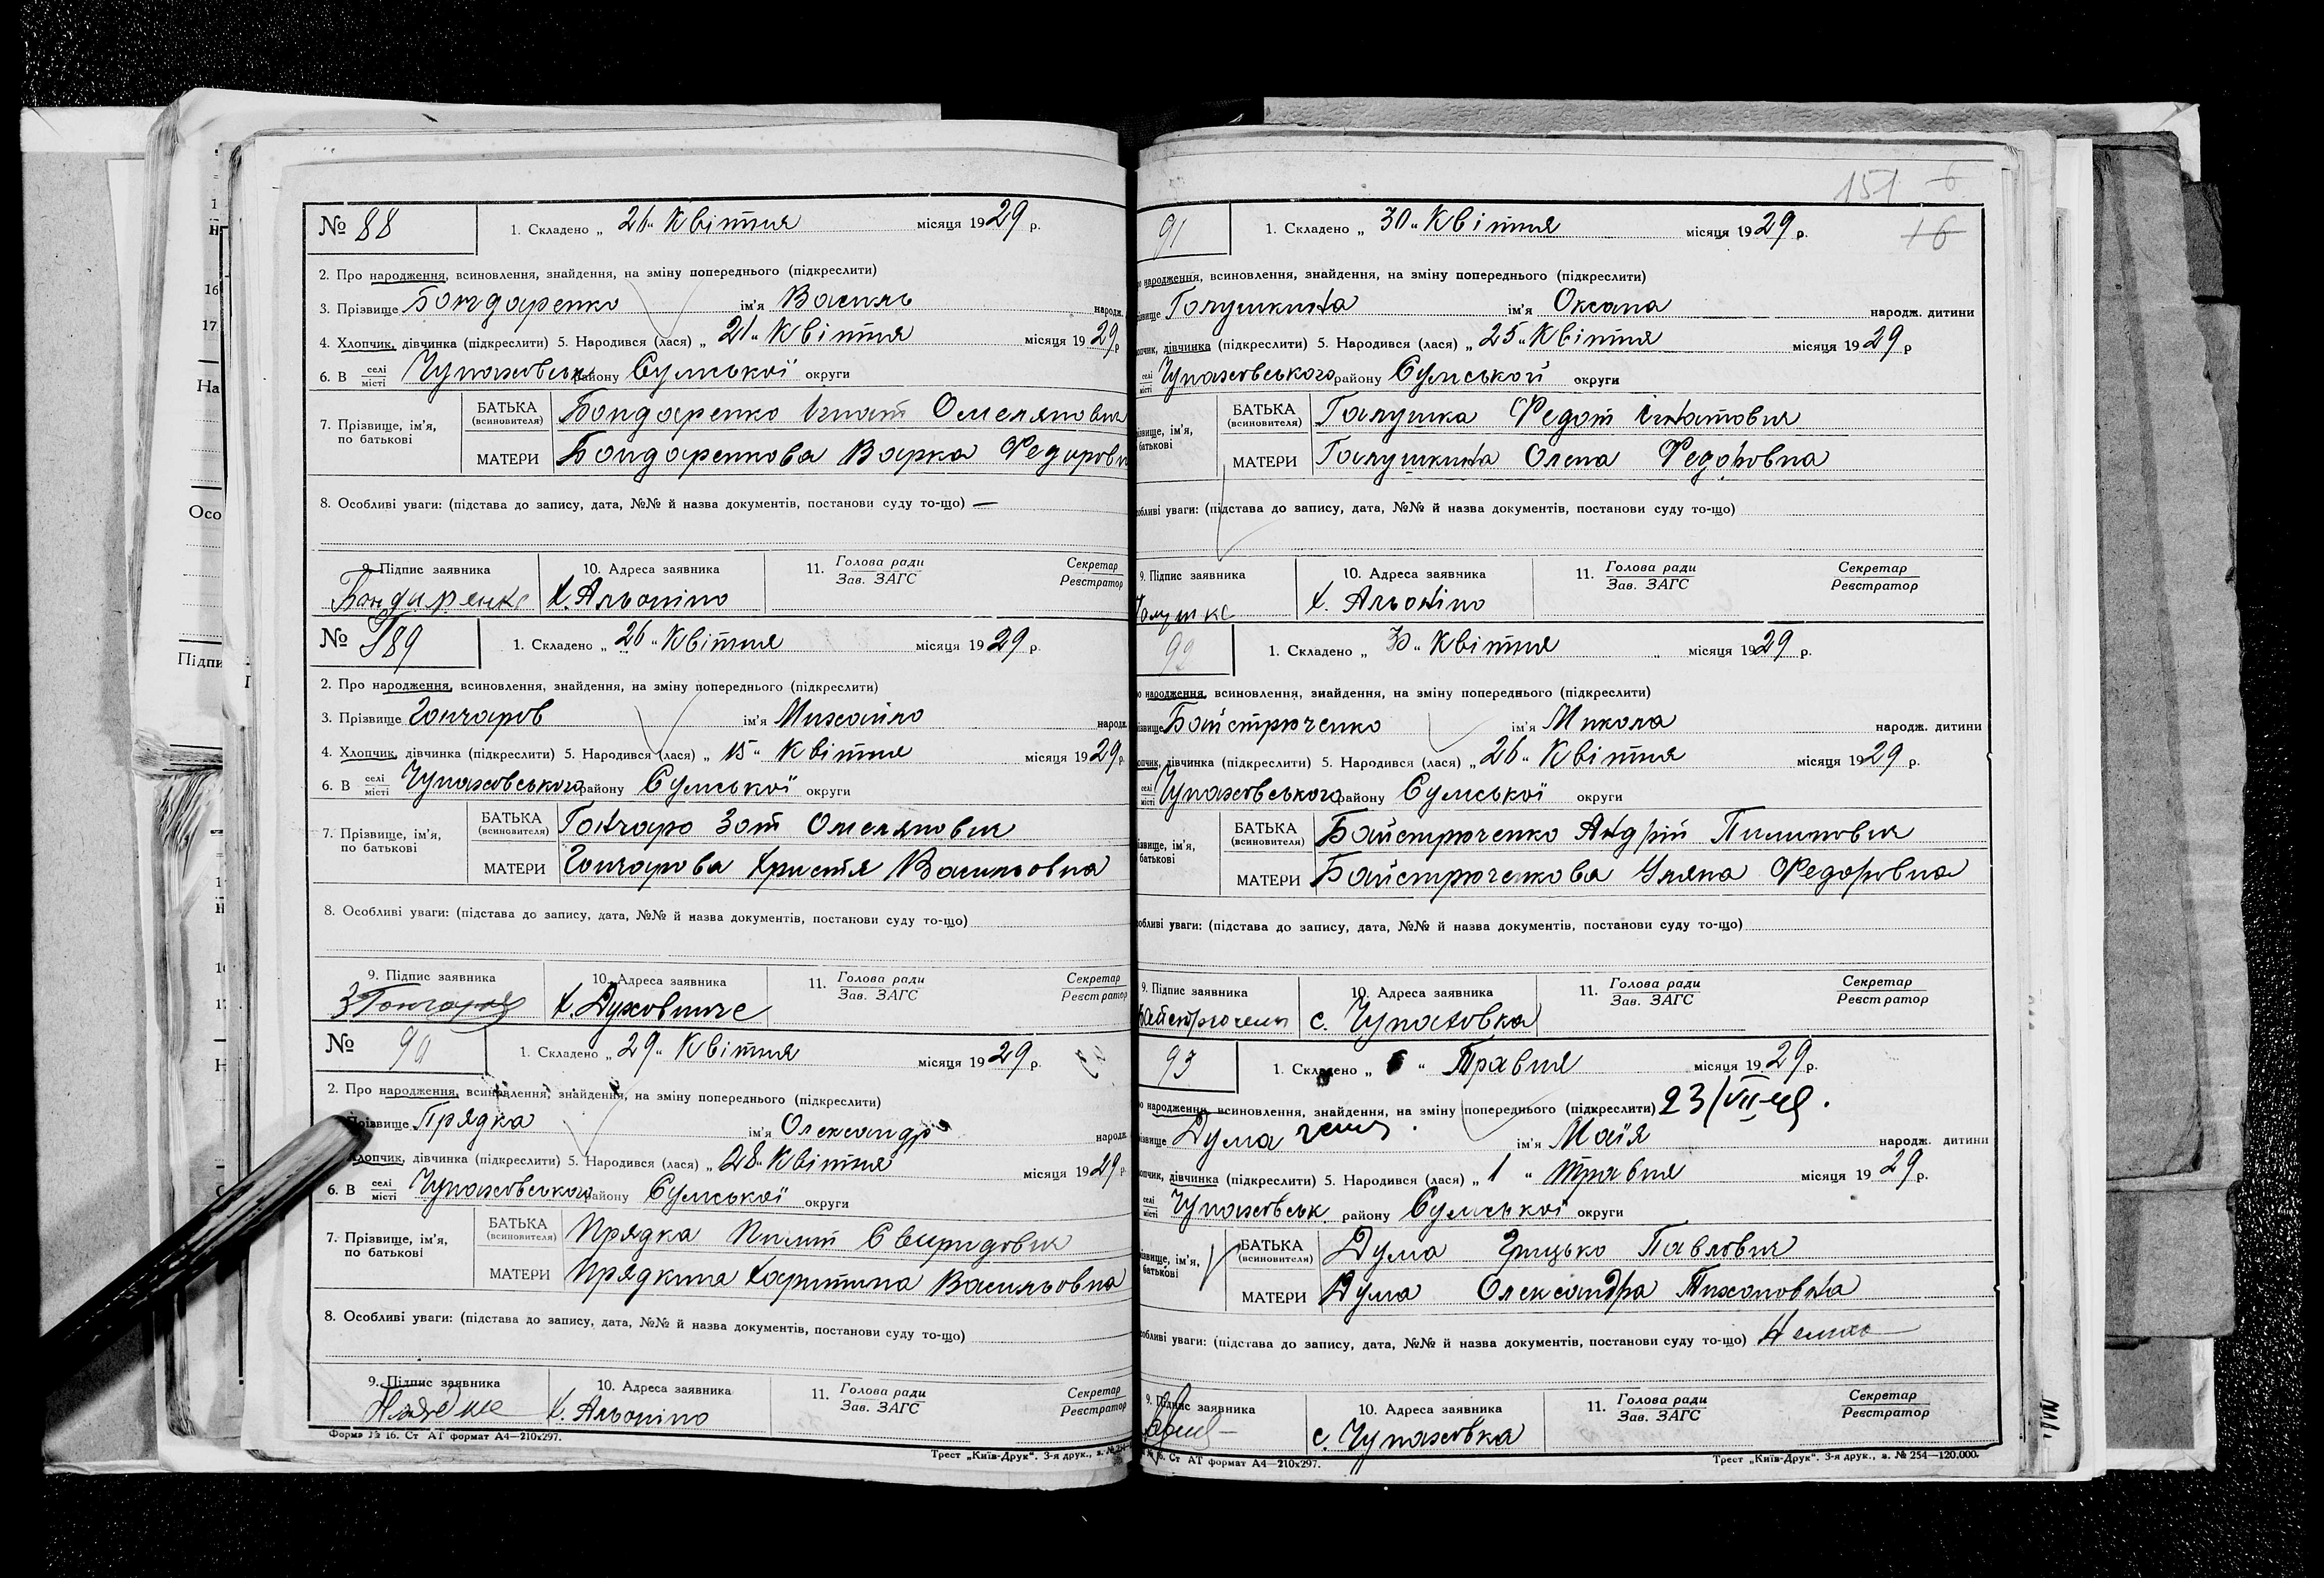 № 88
1. Складено „ 26 " Квітня місяця 1929 р.
2. Про народження, всиновлення, знайдення, на зміну попереднього (підкреслити)
3. Прізвище Бондаренко ім'я Василь народж.
4. Хлопчик, дівчинка (підкреслити) 5. Народився (лася) „ 21 " Квітня місяця 1929 р
6. В селі місті Чупахівськ району Сумської округи
7. Прізвище, ім'я, по батькові
БАТЬКА (всиновителя) Бондаренко Ігнат Омелянович
МАТЕРИ Бондаренкова Варка Федоровн
8. Особливі уваги: (підстава до запису, дата, №№ й назва документів, постанови суду то-що) —
9. Підпис заявника 10. Адреса заявника 11. Голова ради Зав. ЗАГС Секретар Реєстратор
Бондаренко х. Альоніно
№ 89
1. Складено „ 26 " Квітня місяця 1929 р.
2. Про народження, всиновлення, знайдення, на зміну попереднього (підкреслити)
3. Прізвище Гончаров ім'я Михайло народж.
4. Хлопчик, дівчинка (підкреслити) 5. Народився (лася) „ 15 " Квітня місяця 1929 р.
6. В селі місті Чупахівського району Сумської округи
7. Прізвище, ім'я, по батькові
БАТЬКА (всиновителя) Гончаро Зот Омелянович
МАТЕРИ Гончарова Христя Васильовна
8. Особливі уваги: (підстава до запису, дата, №№ й назва документів, постанови суду то-що)
9. Підпис заявника 10. Адреса заявника 11. Голова ради Зав. ЗАГС Секретар Реєстратор
З Гончаров х. Духовниче
№ 90
1. Складено „ 29 " Квітня місяця 1929 р.
2. Про народження, всиновлення, знайдення, на зміну попереднього (підкреслити)
Прізвище Прядка ім'я Олександр народж.
Хлопчик, дівчинка (підкреслити) 5. Народився (лася) „ 28 " Квітня місяця 1929 р.
6. В селі місті Чупахівського району Сумської округи
7. Прізвище, ім'я, по батькові
БАТЬКА (всиновителя) Прядка Пилип Свиридович
МАТЕРИ Прядкина Харитина Васильовна
8. Особливі уваги: (підстава до запису, дата, №№ й назва документів, постанови суду то-що)
9. Підпис заявника 10. Адреса заявника 11. Голова ради Зав. ЗАГС Секретар Реєстратор
х. Альоніно
Форма № 16. Ст АТ формат А4—210х297.
Трест „Київ-Друк". 3-я друк., з. № 254
151 6
16
91
1. Складено „ 30 " Квітня місяця 1929 р.
народження, всиновлення, знайдення, на зміну попереднього (підкреслити)
Галушкина ім'я Оксана народж. дитини
дівчинка (підкреслити) 5. Народився (лася) „ 25 " Квітня місяця 1929 р
селі місті Чупахівського району Сумської округи
БАТЬКА (всиновителя) Галушка Федот Ігнатович
МАТЕРИ Галушкина Олена Федоровна
уваги: (підстава до запису, дата, №№ й назва документів, постанови суду то-що)
9. Підпис заявника 10. Адреса заявника 11. Голова ради Зав. ЗАГС Секретар Реєстратор
Галушка х. Альоніно
92
1. Складено „ 30 " Квітня місяця 1929 р.
народження, всиновлення, знайдення, на зміну попереднього (підкреслити)
Байстрюченко ім'я Микола народж. дитини
дівчинка (підкреслити) 5. Народився (лася) „ 26 " Квітня місяця 1929 р.
селі місті Чупахівського району Сумської округи
БАТЬКА (всиновителя) Байстрюченко Андрій Пилипович
МАТЕРИ Байстрюченкова Уляна Федоровна
уваги: (підстава до запису, дата, №№ й назва документів, постанови суду то-що)
9. Підпис заявника 10. Адреса заявника 11. Голова ради Зав. ЗАГС Секретар Реєстратор
с. Чупахівка
93
1. Складено „ " Травня місяця 1929 р.
народження, всиновлення, знайдення, на зміну попереднього (підкреслити) 23/VII-48.
Дума ім'я Майя народж. дитини
дівчинка (підкреслити) 5. Народився (лася) „ 1 " травня місяця 1929 р.
селі місті Чупахівськ. району Сумської округи
БАТЬКА (всиновителя) Дума Грицько Павлович
МАТЕРИ Дума Олександра Тихоновна
уваги: (підстава до запису, дата, №№ й назва документів, постанови суду то-що) Немає
9. Підпис заявника 10. Адреса заявника 11. Голова ради Зав. ЗАГС Секретар Реєстратор
с. Чупахівка
Ст АТ формат А4—210х297.
Трест „Київ-Друк". 3-я друк., з. № 254—120.000.